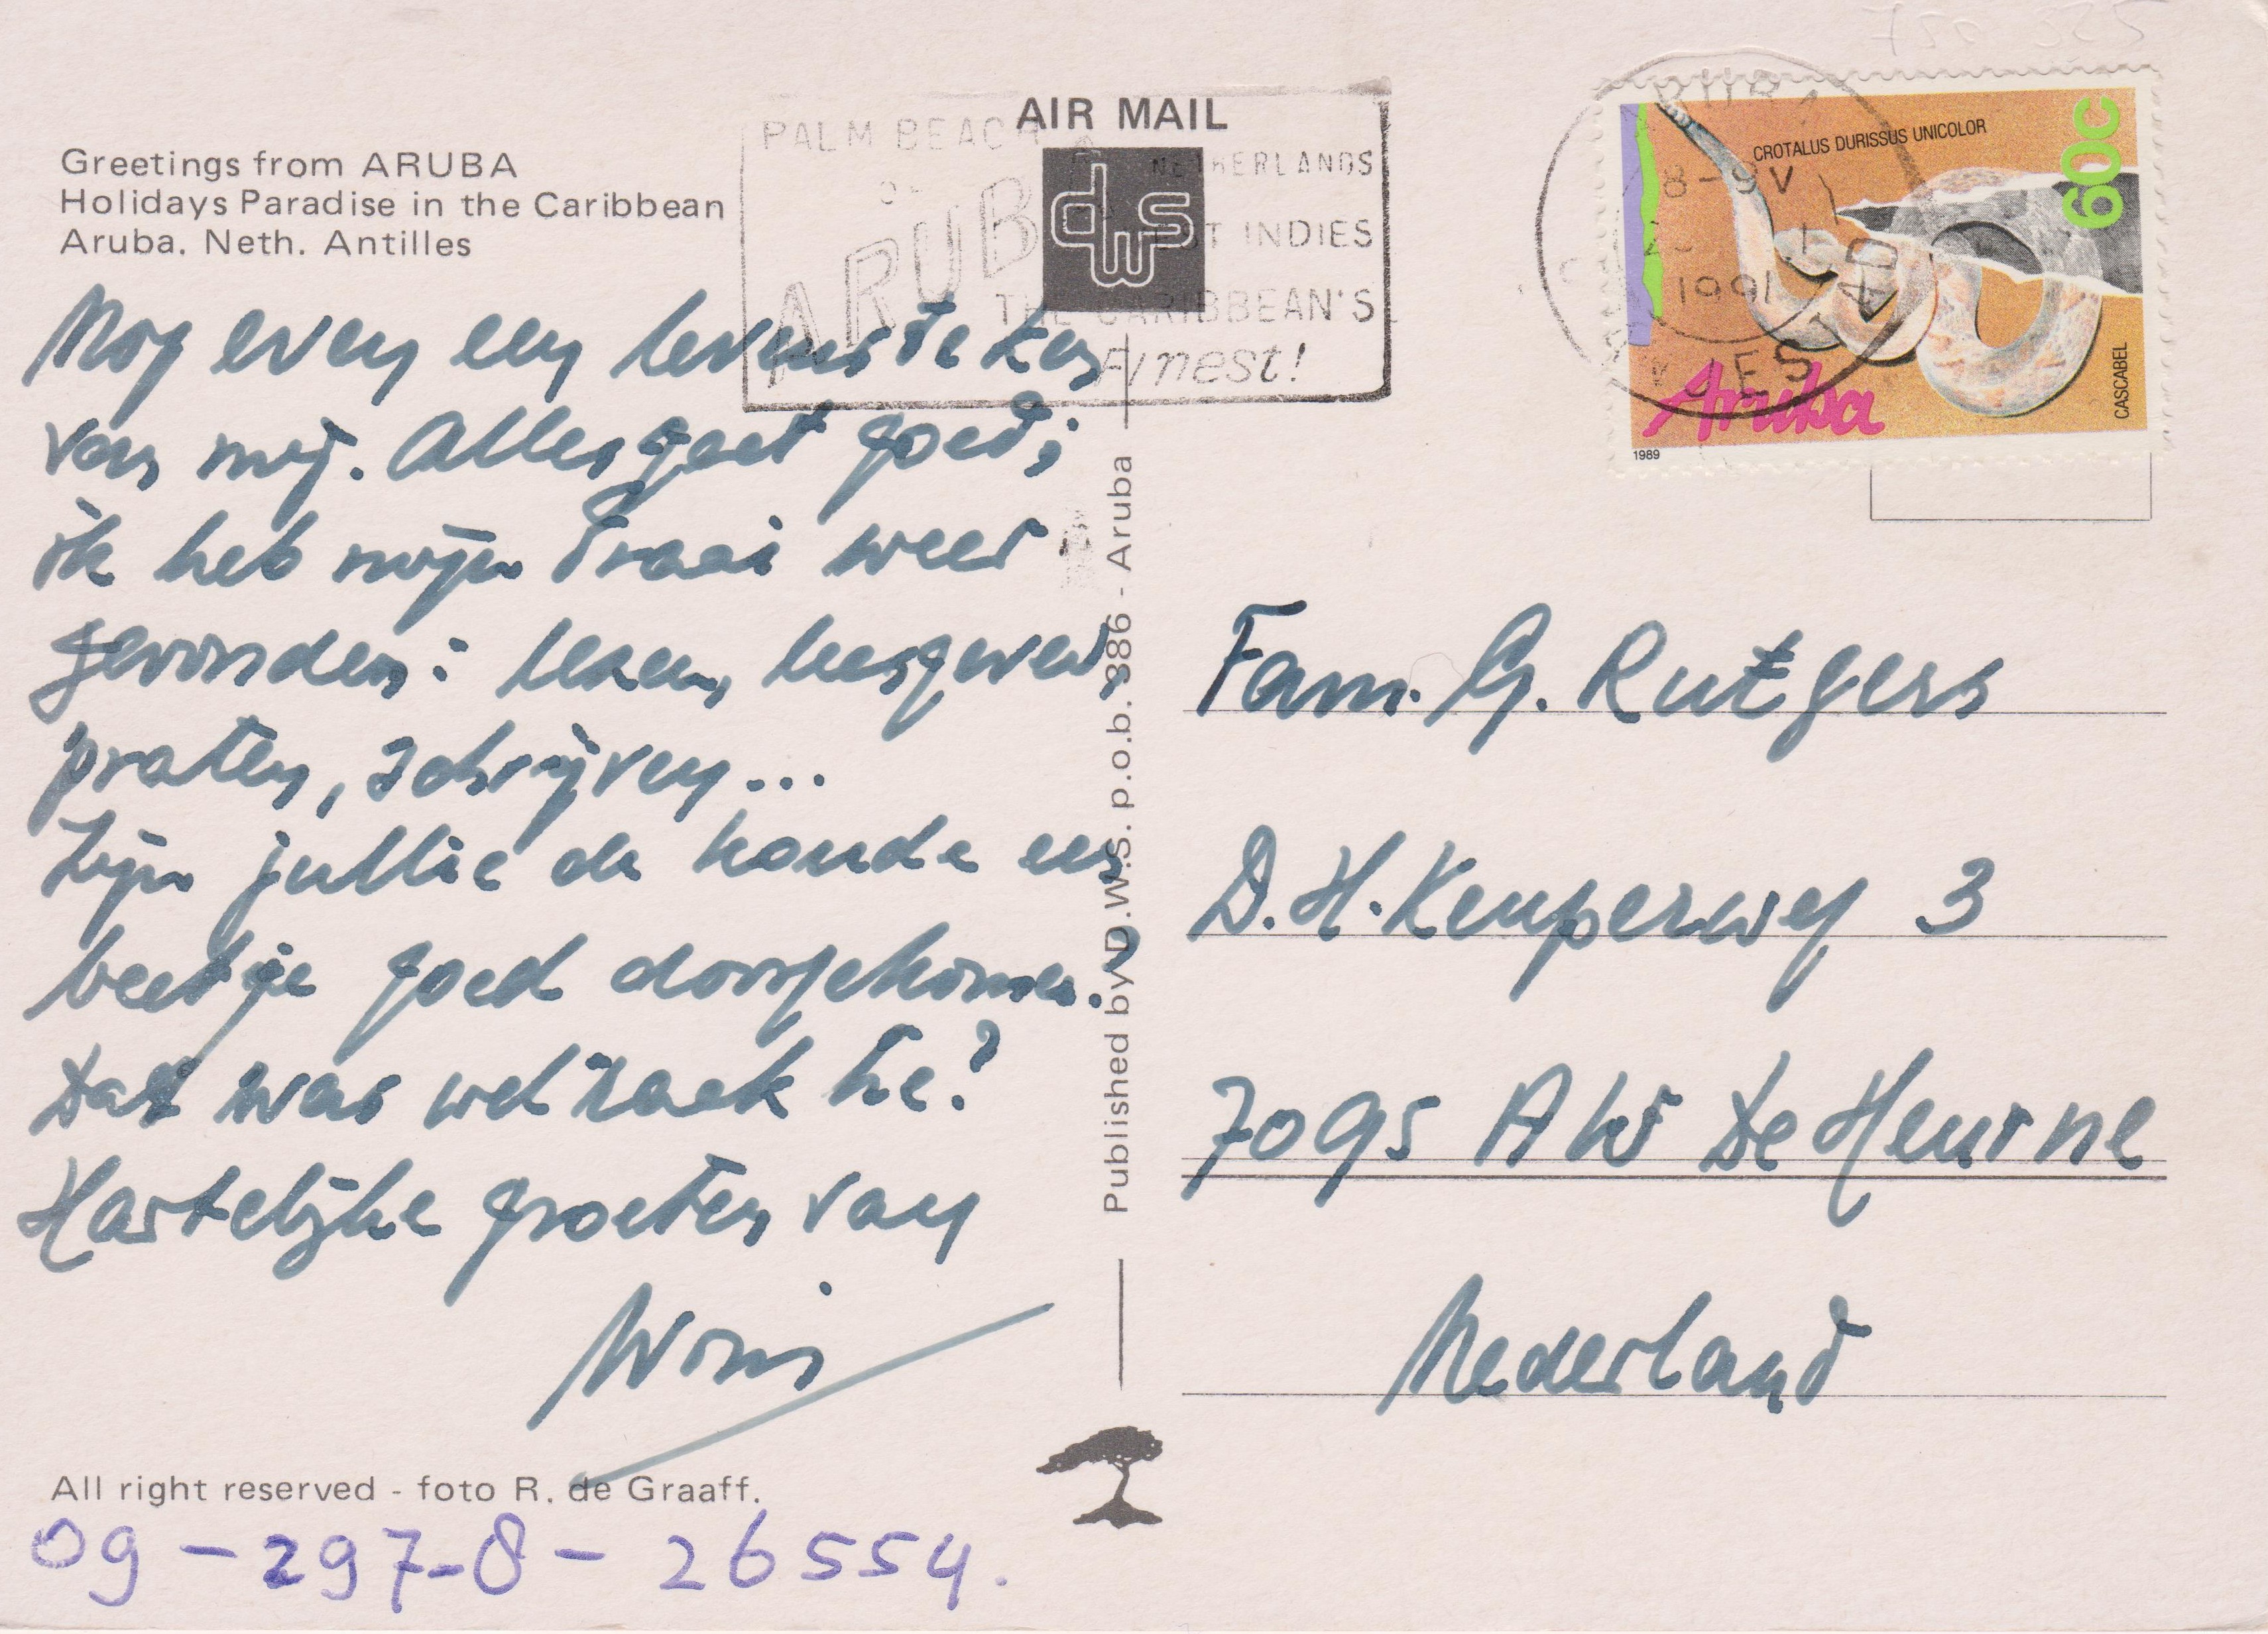 AIR MAIL
Greetings from ARUBA
Holidays Paradise in the Caribbean
Aruba. Neth. Antilles
PALM BEACH
ARUBA
NETHERLANDS
WEST INDIES
THE CARIBBEAN'S
Finest!
dws
CROTALUS DURISSUS UNICOLOR
60c
CASCABEL
Aruba
1989
8-9V
1991
Nog even een levensteken
van mij. Alles gaat goed;
ik heb mijn draai weer
gevonden: lezen, lesgeven,
praten, schrijven...
Zijn jullie de koude een
beetje goed doorgekomen?
Dat was wel raak hè?
Hartelijke groeten van
Wim
Fam. G. Rutgers
D.H. Keuperweg 3
7095 AW De Heurne
Nederland
Published by D.W.S. p.o.b. 386 - Aruba
All right reserved - foto R. de Graaff.
09-297-8-26554.